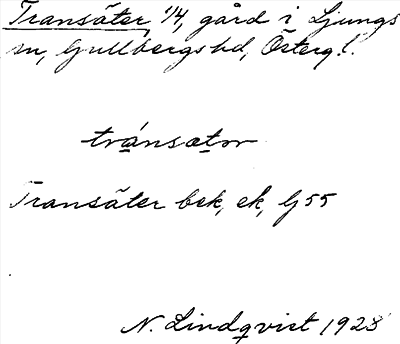 Transäter 1/4, gård i Ljungs
sn, Gullbergs hd, Österg!.
tránsætər
Transäter bek, ek, G 55
N. Lindqvist 1928